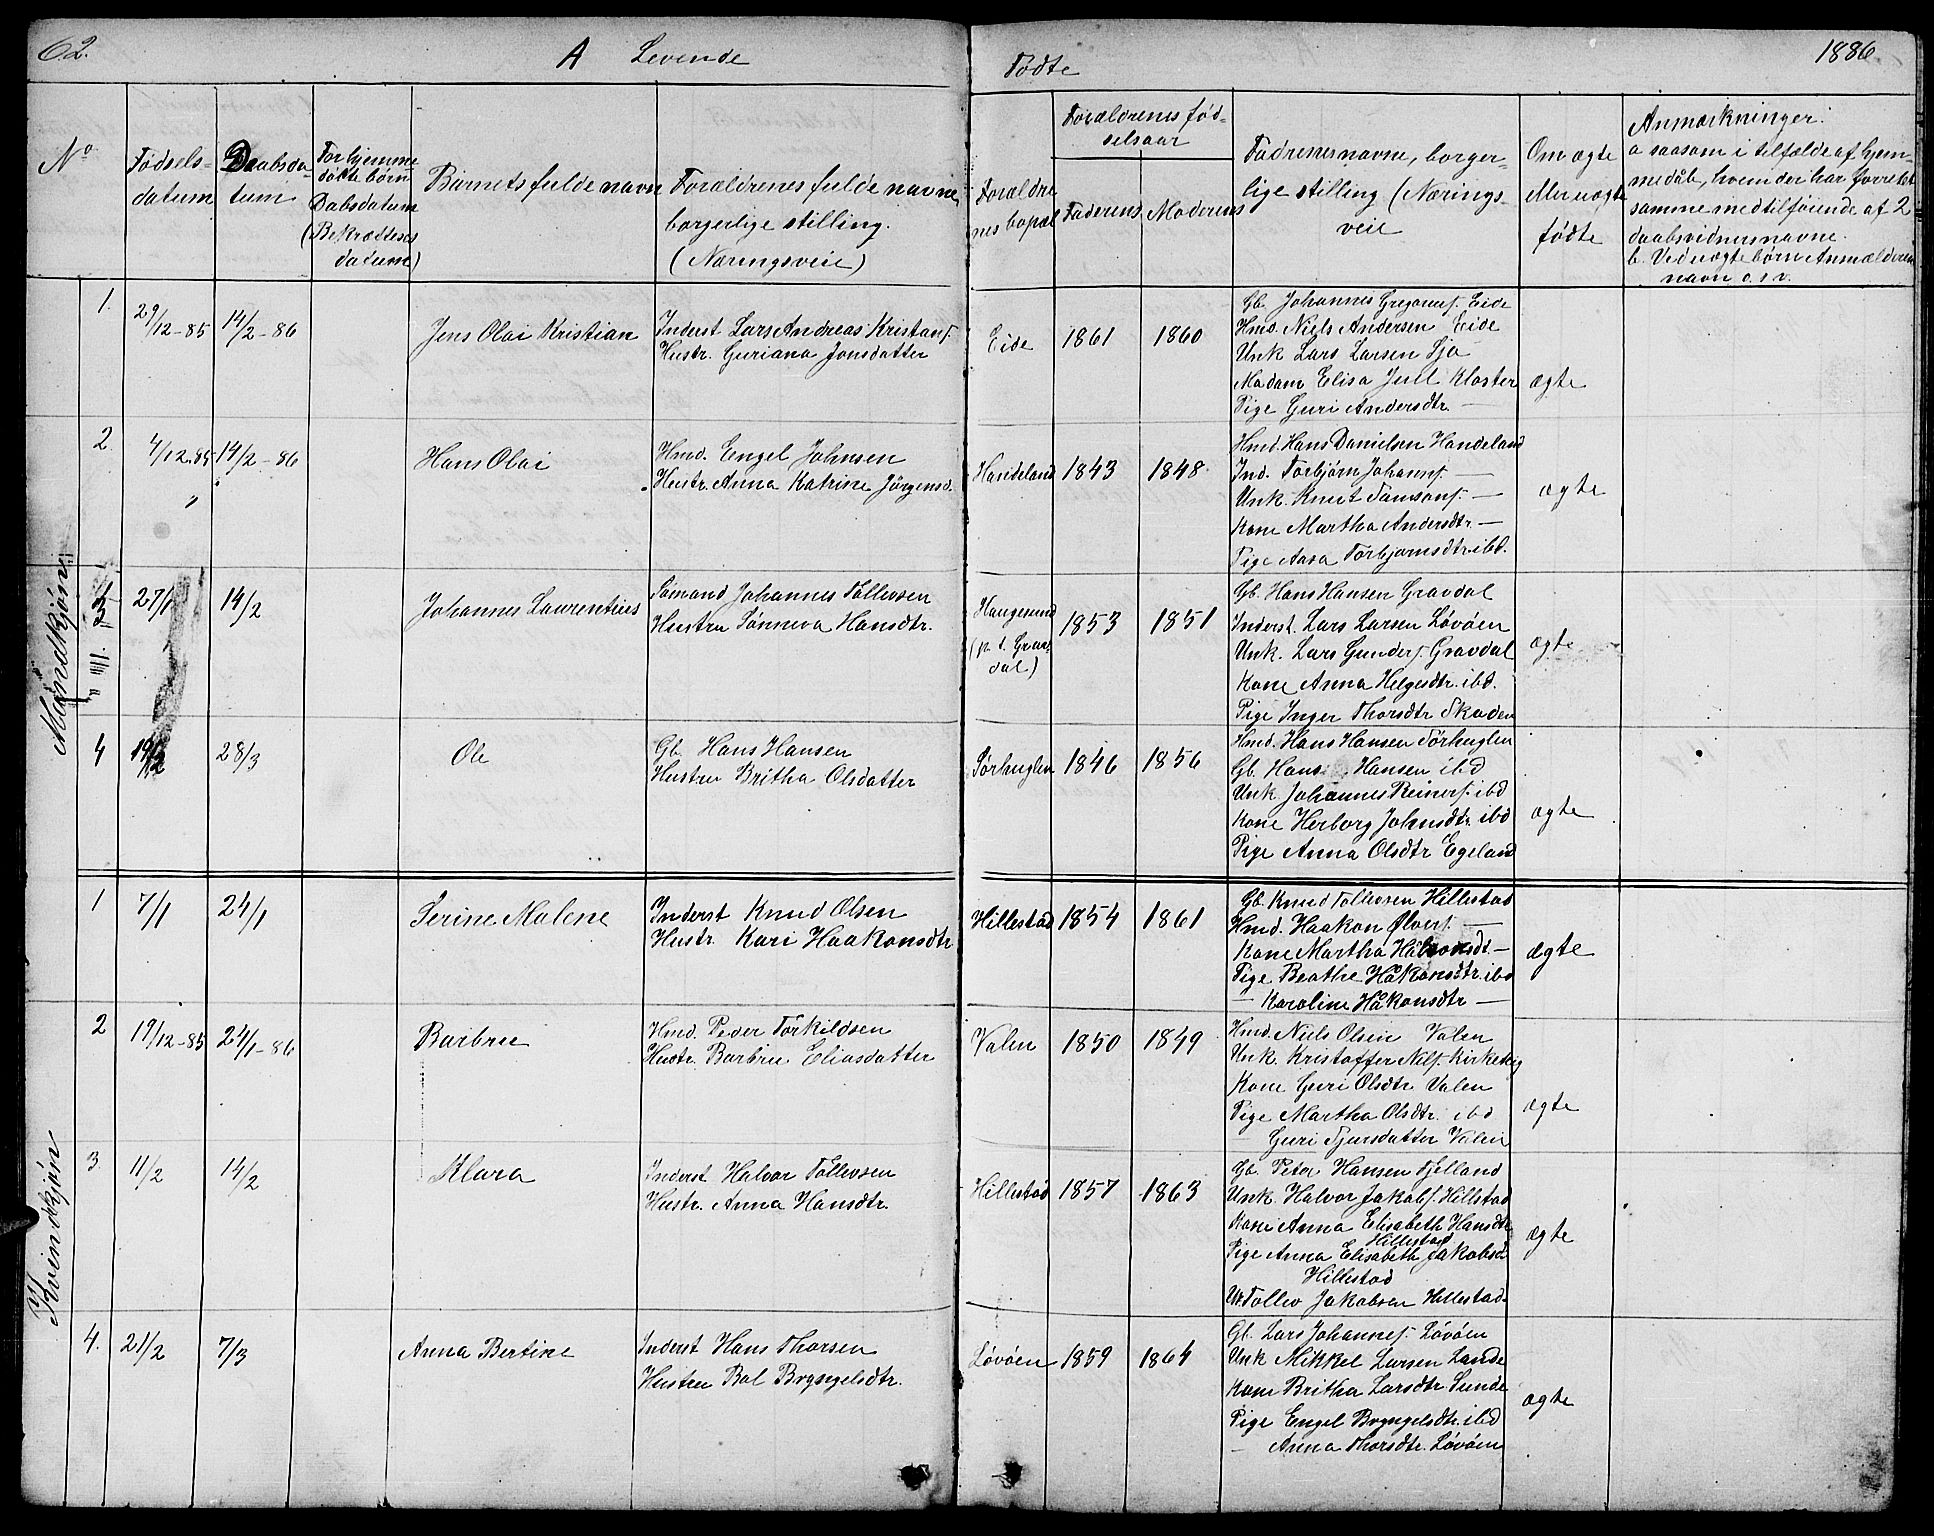 62. A Levende Fødte 1886
No. Fødsels-datum Daabsdatum Forhjemmedøbte børn Dabsdatum (Bekræftelses datum) Barnets fulde navn Forældrenes fulde navne, borgerlige stilling. (Næringsveie)
Forældrenes bopæl Forældrenes fødselsaar Faderens Moderens Fadrenes navne, borgerlige stilling (Næringsveie Om ægte eller uægte fødte
Anmærkninger.
a saasom i tilfælde af hjem-
medåb, hvem der har forrettet
samme med tilføiende af 2
daabsvidners navne.
b. Ved uægte børn Anmælderens
navn o.s.v.
Mandkjøn
1. 29/12-85 14/2-86 Jens Olai Kristian
Inderst Lars Andreas Kristians.
Hustr. Guriana Jonsdatter
Eide 1861 1860
Gb. Johannes Gregorius. Eide
Hmd. Niels Andersen Eide
Unk Lars Larsen Sjo
Madam Elisa Juul Kloster
Pige Guri Andersdtr. —
ægte
2 4/12.85 14/2-86 Hans Olai
Hmd. Engel Johnsen
Hustr. Anna Katrine Jörgensd.
Handeland 1843 1848
Hmd. Hans Danielsen Handeland
Ind. Torbjørn Johanns. —
Unk. Knut Tamsons. —
Kone Martha Andersdtr. —
Pige Aasa Torbjørnsdtr. ibd.
ægte
3 27/1 14/2 Johannes Laurentius
Sømand Johannes Tollevsen
Hustru Sønneva Hansdtr.
Haugesund (p. t. Gravdal) 1853 1851
Gb. Hans Hansen Gravdal
Inderst. Lars Larsen Løvøen
Unk. Lars Gunders. Gravdal
Kone Anna Helgesdtr. ibd.
Pige Inger Thorsdtr Skaden
ægte
4 19/2 28/3 Ole
Gb. Hans Hansen
Hustru Britha Olsdatter
Sørhuglen 1846 1856
Hmd. Hans Hansen Sörhuglen
Gb. Hans Hansen ibd
Unk. Johannes Reiners. ibd
Kone Herborg Johnsdtr. ibd
Pige Anna Olsdtr Egeland
ægte
Kvindkjøn
1 7/1 24/1 Serine Malene
Inderst Knud Olsen
Hustr. Kari Haakonsdtr
Hillestad 1854 1861
Gb. Knud Tollevsen Hillestad
Hmd. Haakon Ølvers. —
Kone Martha Halvorsdt. —
Pige Beathe Håkonsdtr. ibd
— Karoline Håkonsdtr —
ægte
2 19/12-85 24/1-86 Barbru
Hmd. Peder Torkildsen
Hustr. Barbru Eliasdatter
Valen 1850 1849
Hmd. Niels Olsen Valen
Unk. Kristoffer Nils. Kirketeig
Kone Guri Olsdtr Valen
Pige Martha Olsdtr. ibd
— Guri Sjursdatter Valen
ægte
3. 11/2 14/2 Klara
Inderst Halvor Tollevsen
Hustr. Anna Hansdtr.
Hillestad 1857 1863
Gb. Peter Hansen Fjelland
Unk. Halvor Jakobs. Hillestad
Kone Anna Elisabeth Hansdtr
Hillestad
Pige Anna Elisabeth Jakobsd
Hillestad
Uk. Tollev Jakobsen Hillestad.
ægte
4. 21/2 7/3 Anna Bertine
Inderst Hans Thorsen
Hustru Bol Brynjelsdtr.
Løvøen 1859 1864
Gb. Lars Johannes. Løvöen
Unk Mikkel Larsen Lande
Kone Britha Larsdtr Sunde
Pige Engel Brynjelsdtr. ibd
— Anna Thorsdtr. Løvøen
ægte